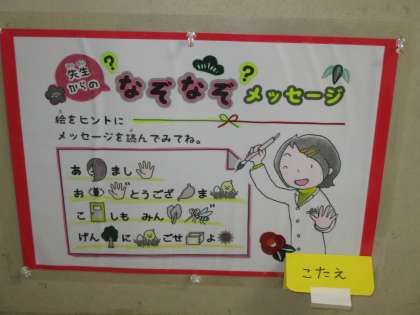 先生
せんせい
からの
なぞなぞ
メッセージ
絵をヒントに
メッセージを読んでみてね。
あ まし
お とうござ ま
こ しも みん
げん に ごせ よ
こたえ